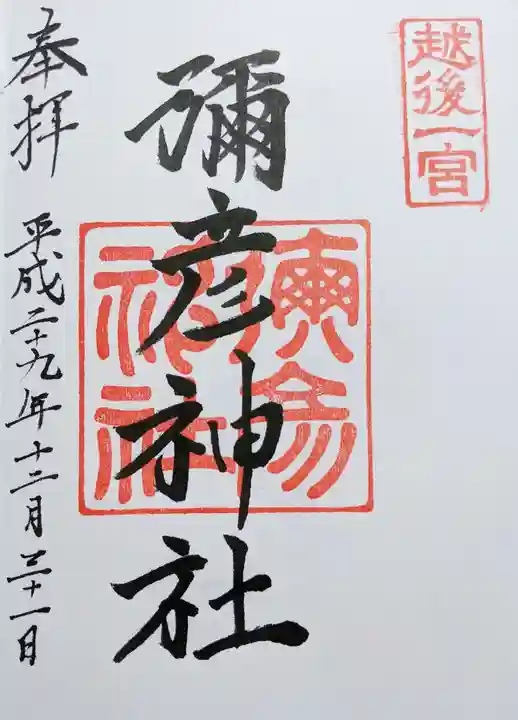 越後一宮
彌彦神社
奉拝
平成二十九年十二月三十一日